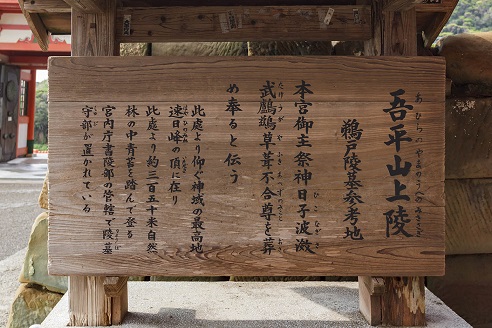 吾平山上陵
鵜戸陵墓参考地
本宮御主祭神日子波激
武鸕鷀草葺不合尊を葬
め奉ると伝う
此處より仰ぐ神域の最高地
速日峰の頂に在り
此處より約三百五十米自然
林の中青苔を踏んで登る
宮内庁書陵部の管轄で陵墓
守部が置かれている